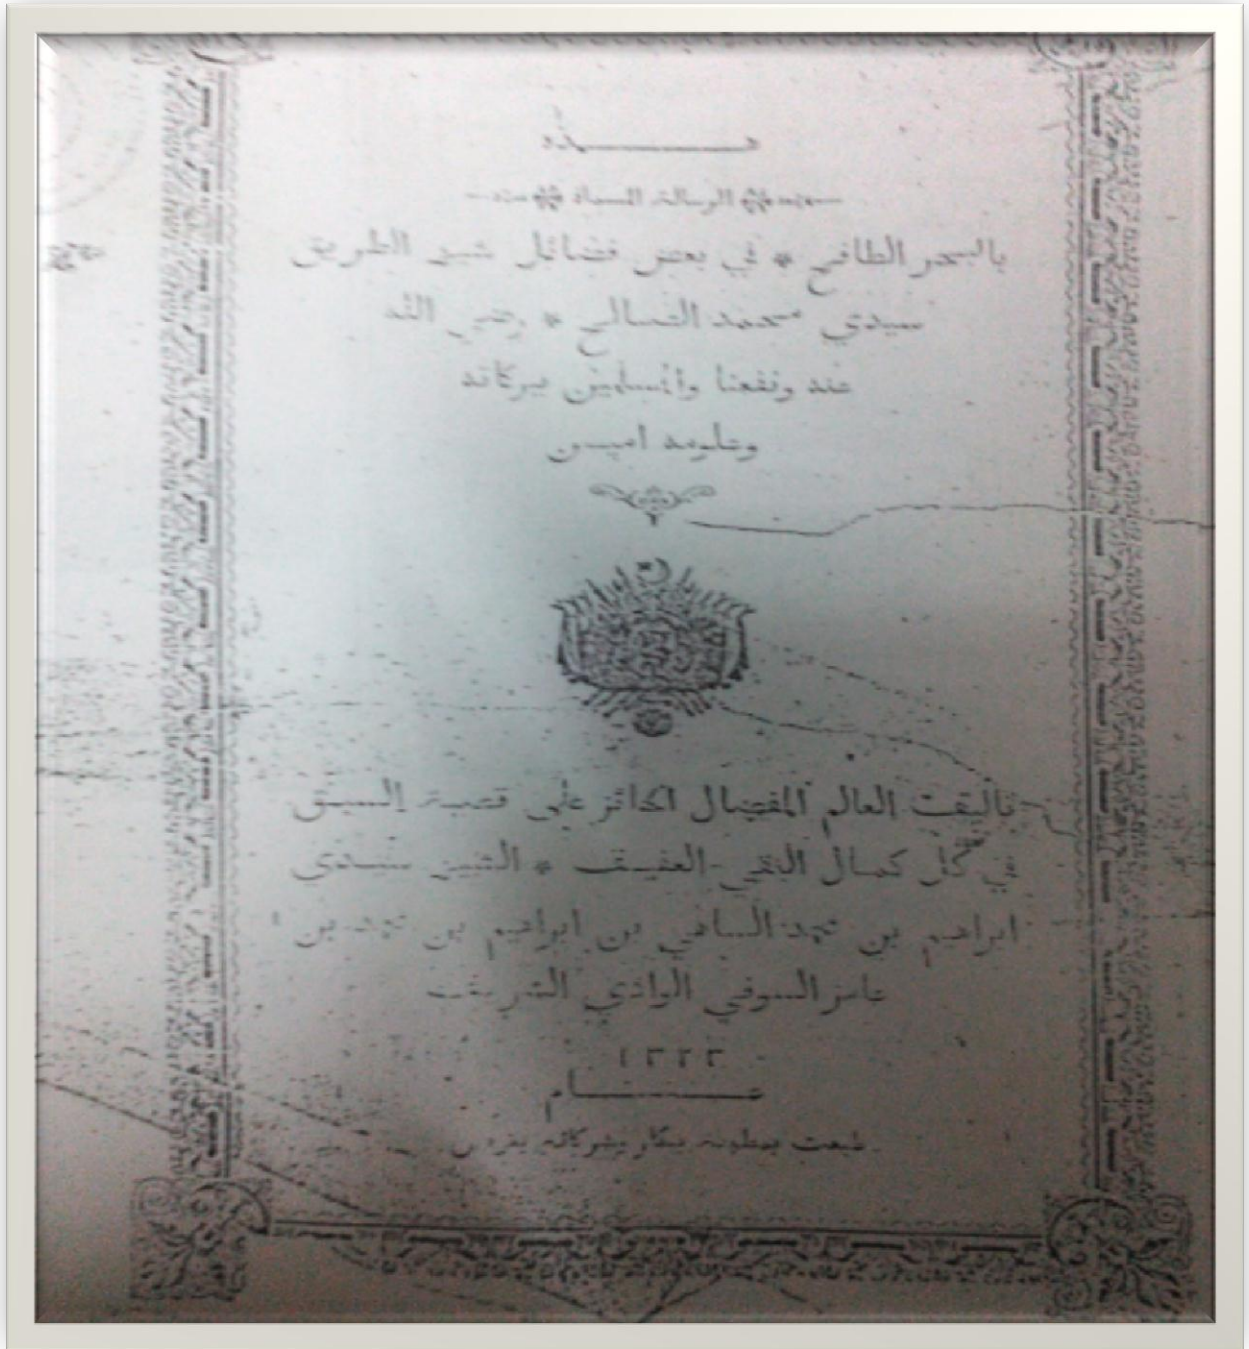 هذه
الرسالة المسماة
بالبحر الطافح * في بعض فضائل شيخ الطريق
سيدي محمد الصالح * رضي الله
عنه ونفعنا والمسلمين ببركاته
وعلومه امين
تاليف العالم المفضال الحائز على قصبة السبق
في كل كمال التقي العفيف * الشيخ سيدي
ابراهيم بن محمد الساسي بن ابراهيم بن محمد بن
عامر السوفي الوادي الشريف
عام
طبعت بمطبعة بيكار وشركائه بتونس